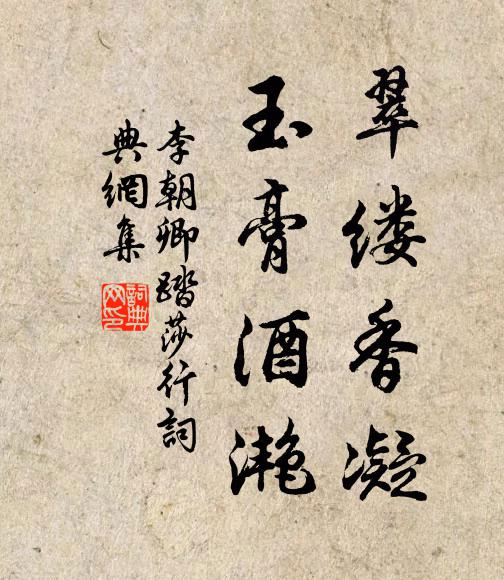 翠缕香凝
玉膏酒滟
李朝卿踏莎行詞
典網集
詞典网印